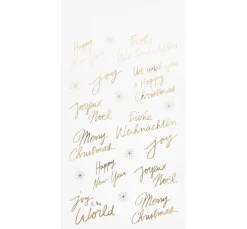 Happy
New Year
Frohe
Weihnachten
joy
We wish you
a Happy
Christmas
Joyeux
Noël
Frohe
Weihnachten
Merry
Christmas
joy
Happy
New Year
Joyeux
Noël
joy
to the
World
Merry
Christmas